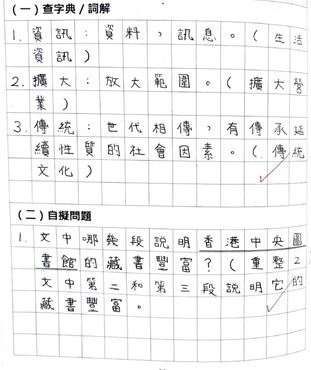 (一)查字典/詞解
1. 資訊:資料,訊息。(生活
資訊)
2. 擴大:放大範圍。(擴大營
業)
3. 傳統:世代相傳,有傳承延
續性質的社會因素。(傳統
文化)
(二)自擬問題
1. 文中哪幾段說明香港中央圖
書館的藏書豐富?(重整2
文中第二和第三段說明它的
藏書豐富。